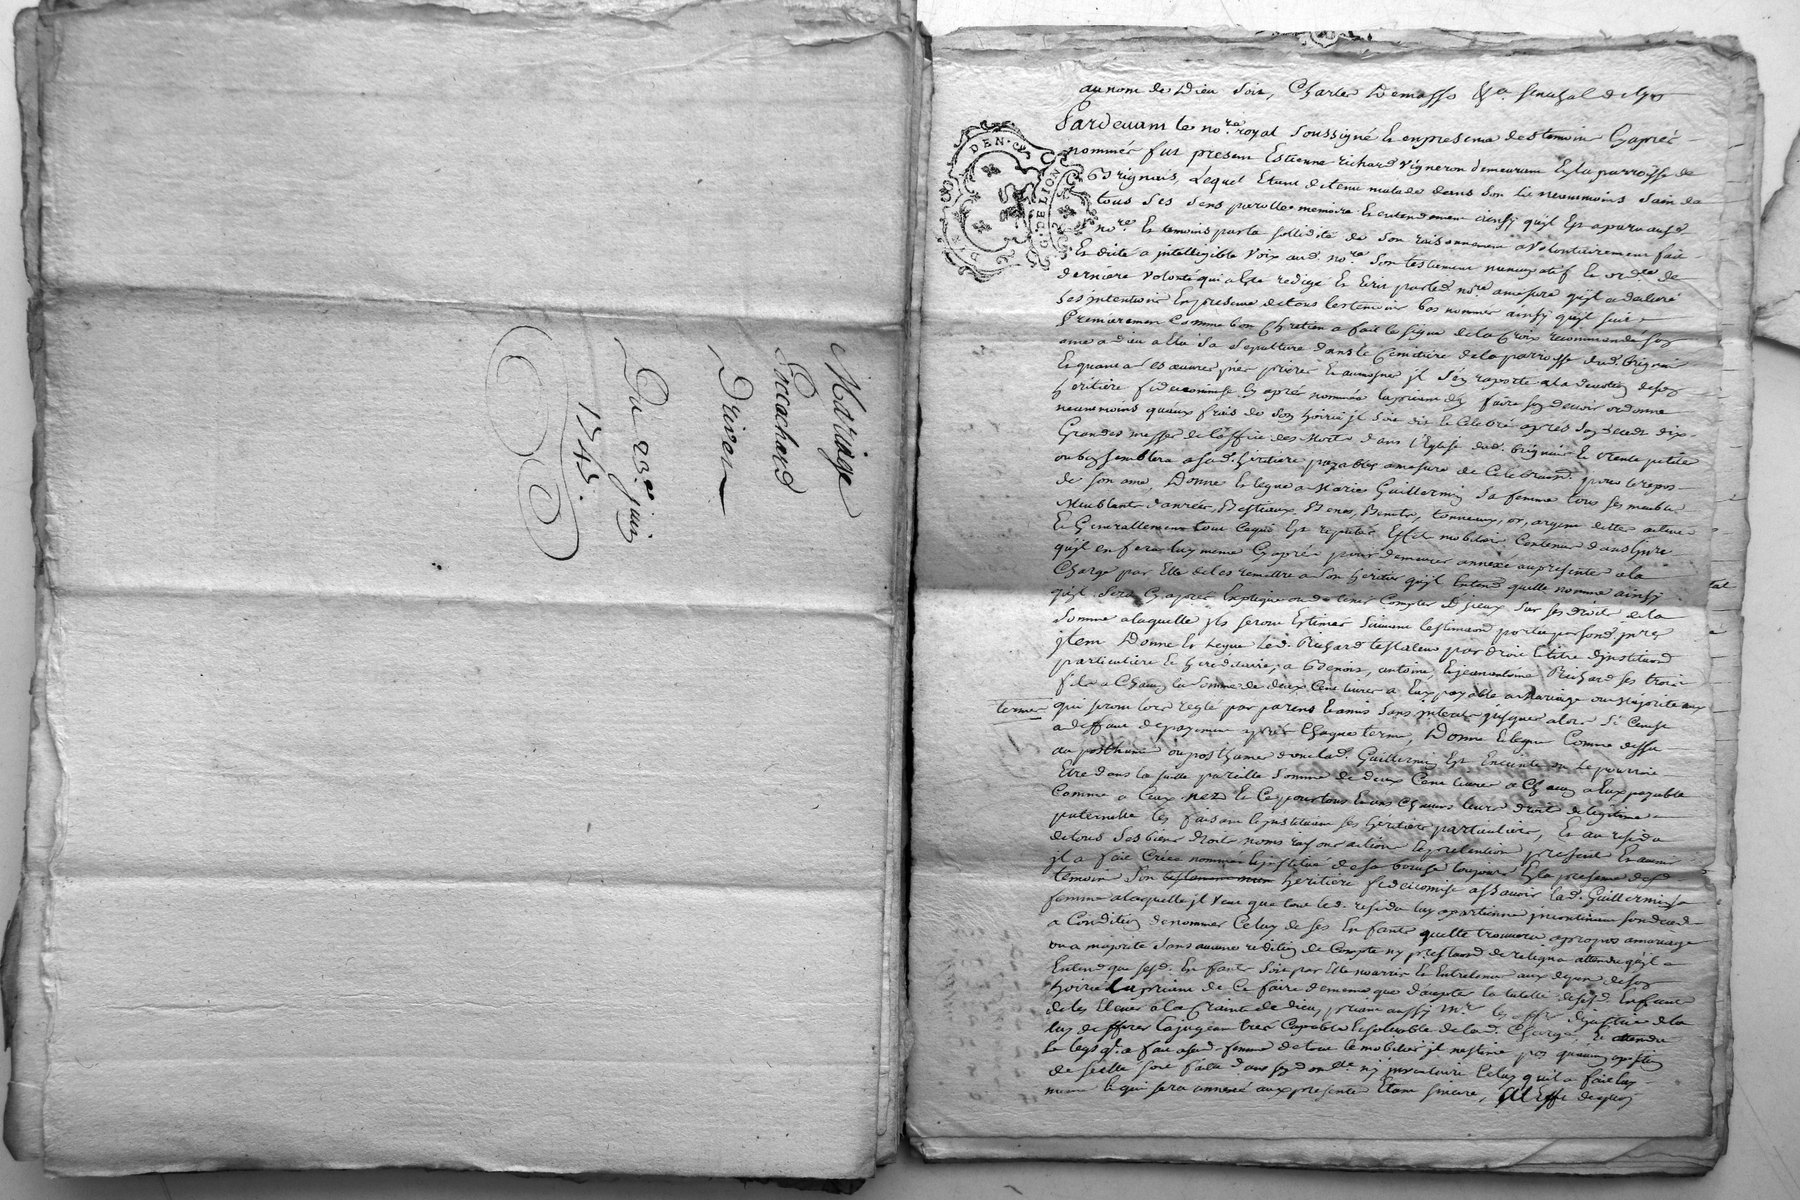 Mariage
Drivon
Du 23e. juin
1745.
DEN.
G. DE LION
au nom de Dieu soit, Charles Demasso &a. senechal de Lyon
Pardevant le nore. royal soussigné & en presence des temoins cy apres
nommés fut present Estienne Richard vigneron demeurant en la parroisse de
Brignais, Lequel etant detenu malade dans son lit neanmoins sain de
tous ses sens parolle memoire & entendement ainsy quyl est aparu aud.
nore. & temoins par la sollidité de son raisonnement a volontairement fait
& dicté a intelligible voix aud. nore. son testament nuncupatif & ordre. de
derniere volonté qui a été redigé en ecrit par led. nore. amesure quyl a declaré
ses intentions en presence de tous les temoins bas nommés ainsy quyl suit
Premierement comme bon Chretien a fait le signe de la Croix recommandé son
ame a dieu elu sa sepulture dans le Cemetiere de la parroisse dud. Brignais
& quant a ses œuvres pies prieres & aumosnes jl s'en raporte a la devotion de son
heritiere fideicomise cy aprés nommée la priant d'y faire son devoir ordonne
neanmoins quaux frais de son hoirie jl soit dit & celebré aprés son decés dix
Grandes messes de l'office des Morts dans l'Eglise dud. Brignais & trente petite
ou bon semblera a sad. heritiere payables amesure de celebraond. pour le repos
de son ame, Donne & legue a Marie Guillermin sa femme tous ses meubles
Meublants danrées, Bestiaux, tonneaux, or, argent dettes actives
& Generallement tout ce qui est reputés effet mobilier contenus dans
quyl en fera luy meme cy aprés pour demeurer annexé au presentes a la
charge par Elle de les remettre a son heritier quyl entend quelle nomme ainsy
quyl sera cy aprés expliqué ou de tenir compte d'jceux sur ses droits de la
somme a laquelle jls seront estimés suivant
jtem Donne & legue led. Richard testateur par droit & titre d'jnstituond
particuliere & hereditaire, a Benoit, antoine, & jean antoine Richard ses trois
fils a Chacun la somme de deux cent livres a Eux payable a Mariage ou Majorité aux
termes
qui seront lors reglé par parens & amis sans jnterets jusques alors si ce n'est
a deffaut de payement aprés Chaque terme, Donne & legue Comme dessu
au posthume ou posthumes dont lad. Guillermin est Enceinte ou le pourroit
Etre dans la suite pareille somme de deux Cent livres a Chacun a Eux payable
Comme a Ceux nez & ce pour tous & uns Chacuns leurs droits de legitime
paternelle les faisant & jnstituant ses héritiers particuliers, Et au residu
de tous ses biens droits noms raisons actions & pretentions present & avenir
jl a fait créé nommé & jnstitué de sa bouche toujours en la presence desd.
temoin son heritiere fideicomise assavoir lad. Guillermin sa
femme a laquelle jl veut que tout led. residu luy apartienne jncontinent son deced
a Condition de nommer Celuy de ses Enfants quelle trouvera apropos a mariage
ou a majorité sans aucune reddition de Compte ny prestaond. de reliqua attendu quyl a
Entend que sesd. Enfants soit par Elle nourris & Entretenus aux depens de son
hoirie La priant de ce faire de meme que d'accepter la tutelle de sesd. Enfants
de les Elever a la Crainte de dieu, priant aussy Mrs. les off. de justice de la
luy deferer la jugeant tres Capable & solvable de lad. Charge, Et attendu
le legs ql. a fait a sad. femme de tout le mobilier jl nestime pas
de scellé soit fait dans son ny jnventaire Celuy quil a fait luy
meme & qui sera annexé aux presentes Etant sincere,